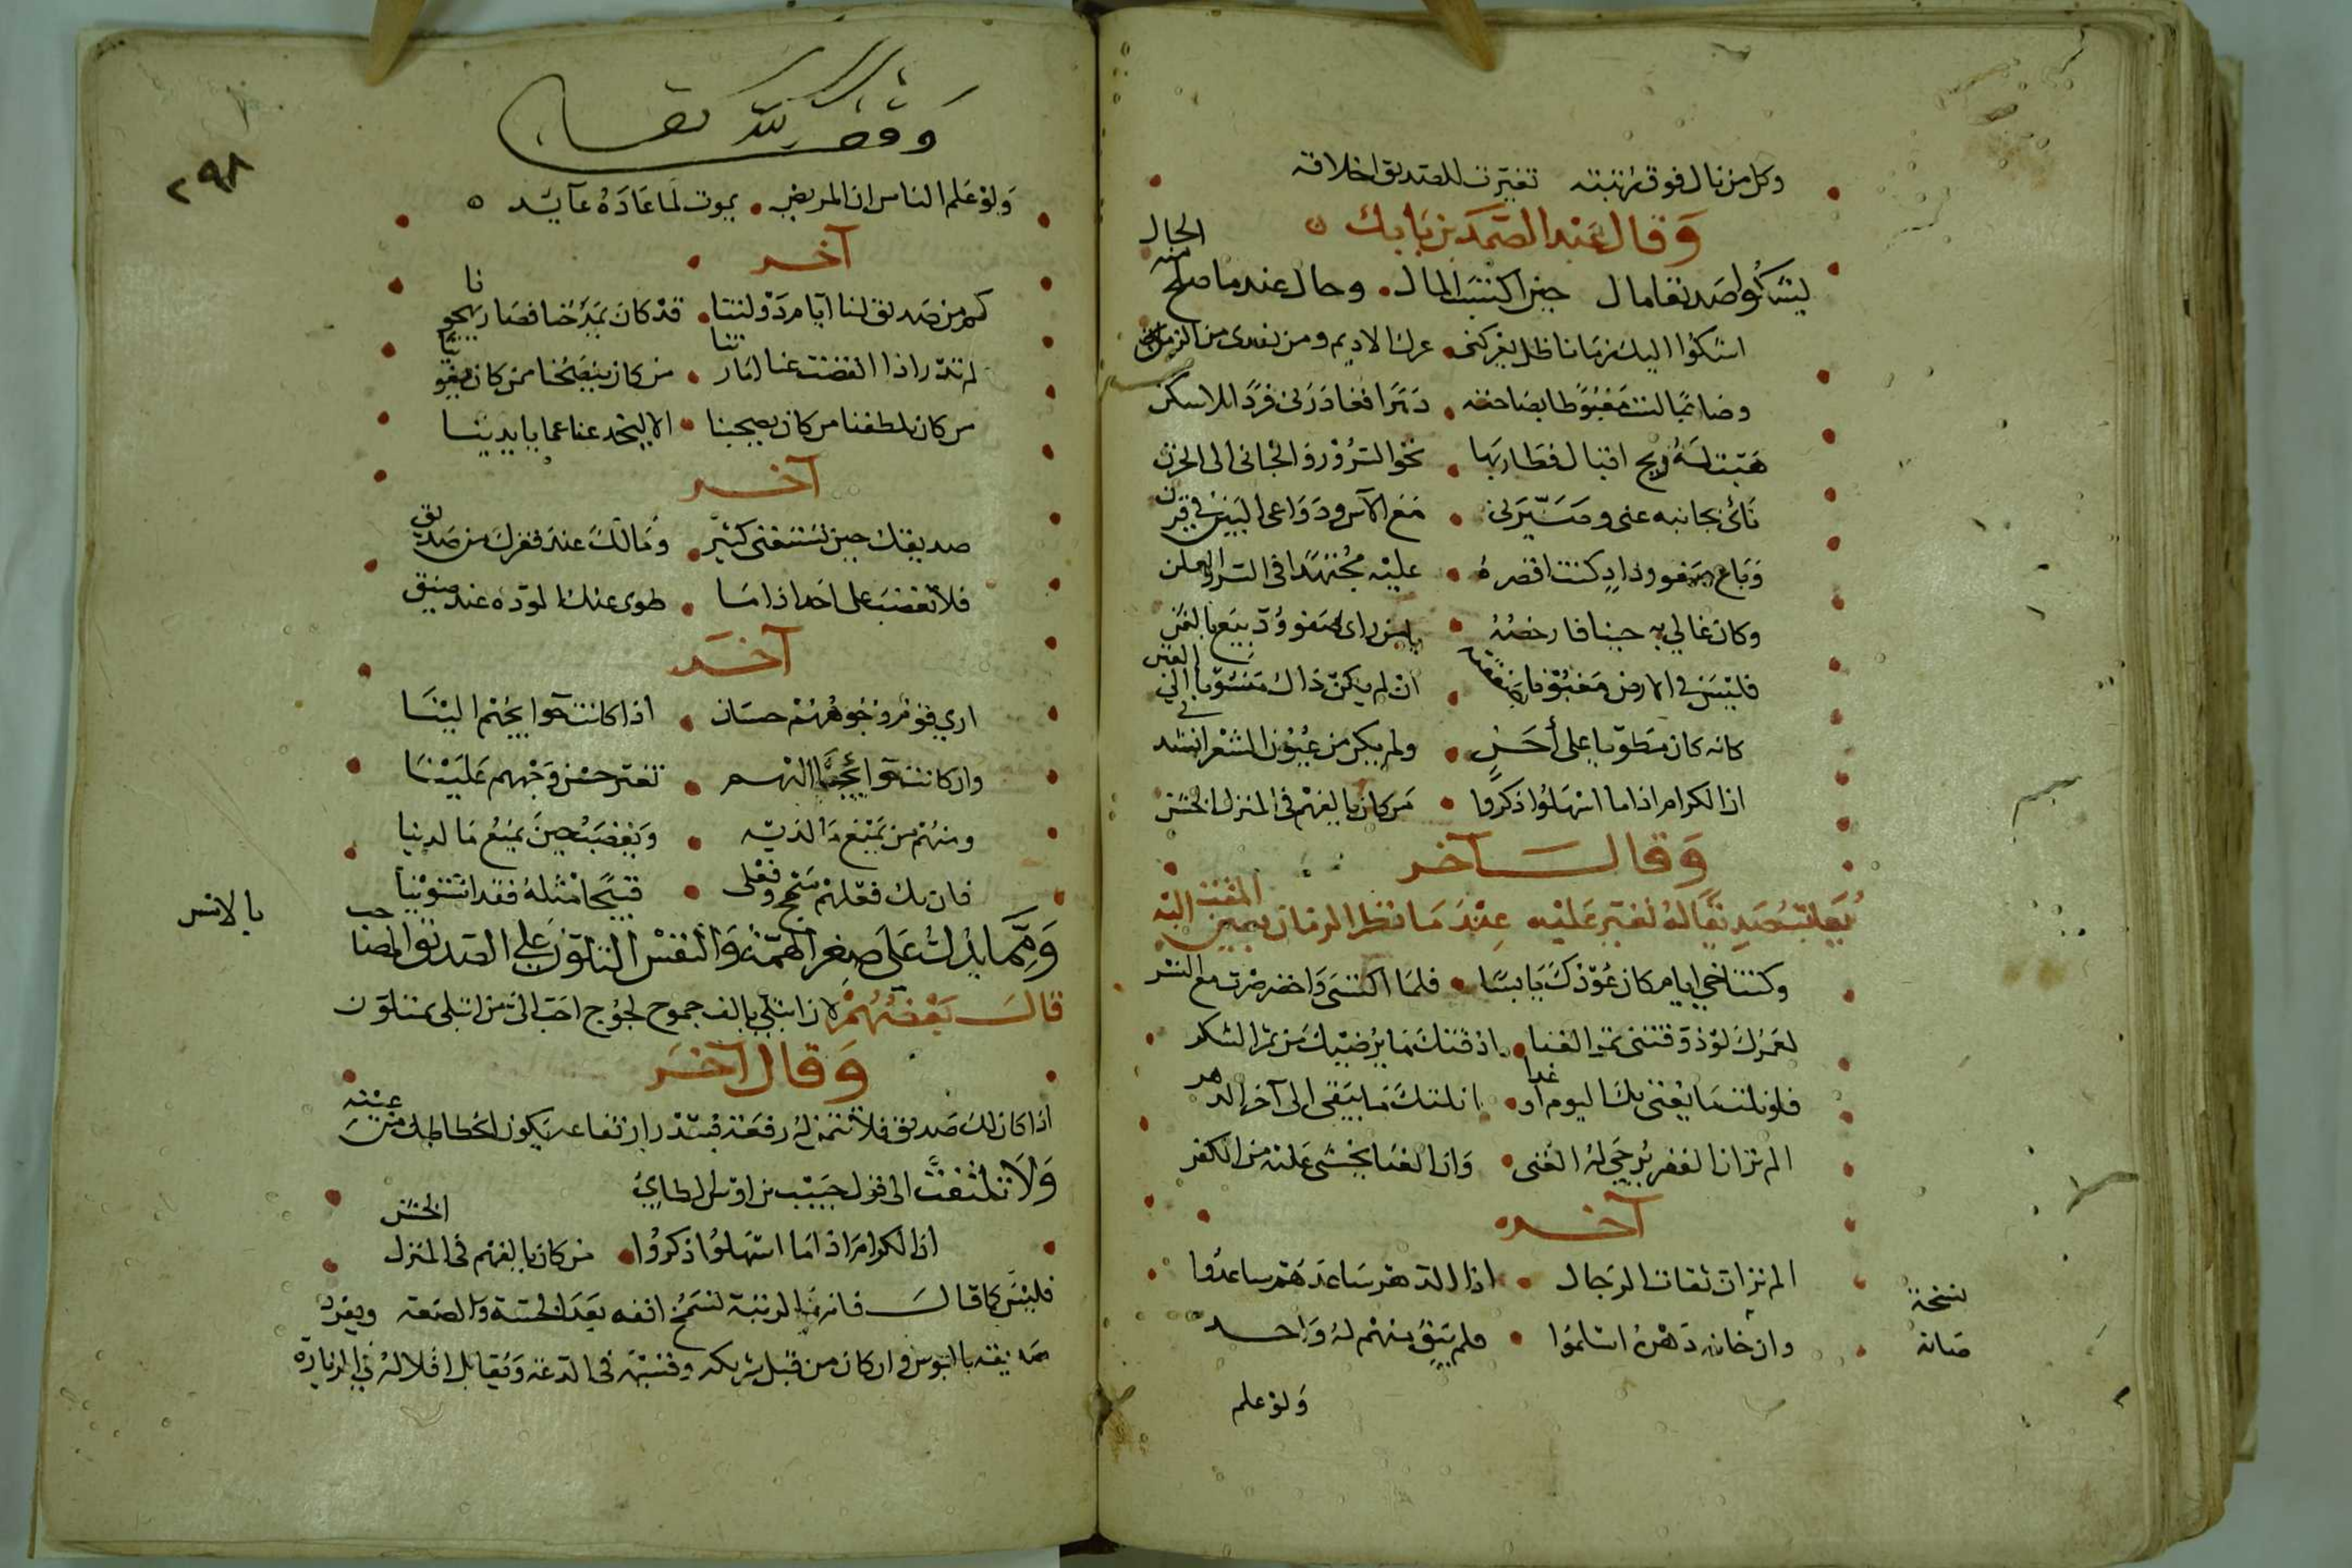 وكل من نال فوق رتبته تغيرت للصديق اخلاقه
وقال عبد الصمد بن بابك
يشكوا صديقا مال حين اكتسب المال وحال عندما صلح منه الحال
اشكوا اليك زمانا ظل يعركنى عرك الاديم ومن يعدى من الزمن
وصاحبا كنت مغبوطا بصاحته دهرا فغادرنى فردا بلا سكن
هبت له ريح اقبال فطار بها نحو السرور والجانى الى الحزن
نأى بجانبه عنى وصيرنى مع الاسى ودواعى البين فى قرن
وباع صفو وداد كنت اقصره عليه مجتهدا فى السر والعلن
وكان غالى به حينا فارخصه يا من راى صفو ود بيع بالثمن
فليس فى الارض مغبون ان لم يكن ذاك منسوبا الى الغبن
كانه كان مطويا على أحن ولم يكن من عيون الشعر انشدنى
ان الكرام اذا ما اسهلوا ذكروا من كان يالفهم فى المنزل الخشن
وقال آخر
يعاتب صديقا له تغير عليه عند ما نظر الزمان بعين المقت اليه
وكنت اخى ايام كان عودك يابسا فلما اكتسى واخضر صرت مع النسر
لعمرك لو ذوقتنى ثمر الغنا اذقتك ما يرضيك من ثمر الشكر
فلو نلت ما يغنى بك اليوم او غدا انلتك ما يبقى الى آخر الدهر
الم تر ان الفقر يرجى له الغنى وان الغنا يخشى عليه من الكفر
آخر
الم تر ان ثقات الرجال اذا الدهر ساعدهم ساعدوا
وان خانه دهره اسلموا فلم يبق منهم له واحد
نسخة
خانه
ولو علم
وقف لله تعالى
٢٩٨
ولو علم الناس ان المريض يموت لما عاده عايد
آخر
كم من صديق لنا ايام دولتنا قد كان يمدحنا فصار يهجونا
لم ندر اذا انقضت عنا امارتنا من كان ينصحنا ممن كان يغوينا
من كان يلطفنا من كان يصحبنا الا ليخدعنا عما بايدينا
آخر
صديقك حين تستغنى كثير ومالك عند فقرك من صديق
فلا تغضب على احد اذا ما طوى عنك المودة عند ضيق
آخر
ارى قوما وجوههم حسان اذا كانت حوايجهم الينا
وان كانت حوايجنا اليهم تغير حسن وجههم علينا
ومنهم من يمنع ما لديه ويغضب حين يمنع ما لدينا
فان يك فعلهم سمج وفعلى قبيحا مثله فقد استوينا
ومما يدل على صغر الهمة والنفس التلون على الصديق المصاحب
بالانس
قال بعضهم لان ابتلى بالف جموح لجوج احب الى من ابتلى بمتلون
وقال آخر
اذا كان لك صديق فلا تتمن له رفعة فبقدر ارتفاعه يكون انحطاطك من عينه
ولا تلتفت الى قول حبيب بن اوس الطايى
ان الكرام اذا ما اسهلوا ذكروا من كان يالفهم فى المنزل الخشن
فليس كما قال فان الرتبة تشمخ انفه بعد الخسة والضعة ويفرد
صديقه بالبوس وان كان من قبل شريكه وقسيمه فى الدعة ويقابل اقلاله فى الزيارة